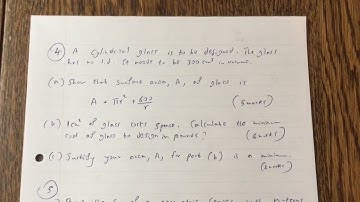 ④ A Cylindrical glass is to be designed. The glass
has no lid. It needs to be 300cm³ in volume.
(a) Show that surface area, A, of glass is
A = πr² + 600/r (5 marks)
(b) 1cm² of glass costs 5pence. Calculate the minimum
cost of glass to design in pounds? (6 marks)
(c) Justify your area, A, for part (b) is a minimum.
(2 marks)
⑤